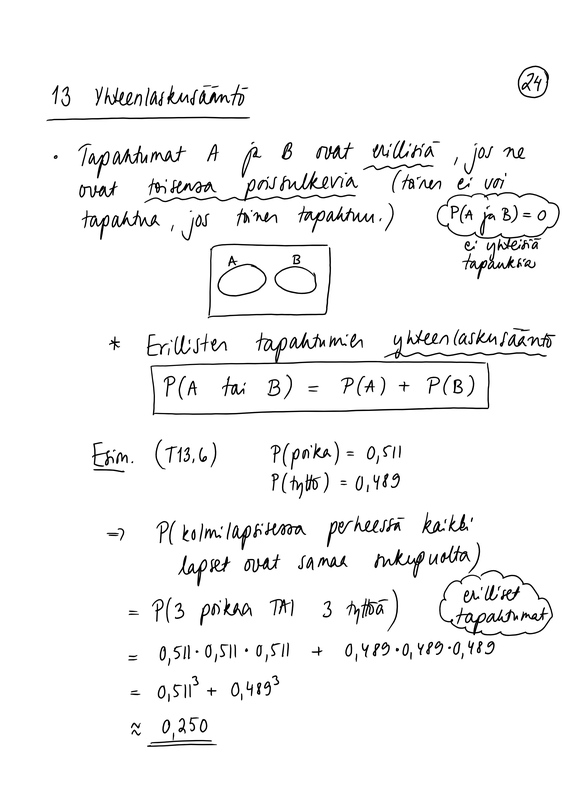 24
13 Yhteenlaskusääntö
• Tapahtumat A ja B ovat erillisiä, jos ne
ovat toisensa poissulkevia (toinen ei voi
tapahtua, jos toinen tapahtuu.)
P(A ja B) = 0
ei yhteisiä
tapauksia
A B
* Erillisten tapahtumien yhteenlaskusääntö
P(A tai B) = P(A) + P(B)
Esim. (T13,6) P(poika) = 0,511
P(tyttö) = 0,489
⇒ P(kolmilapsisessa perheessä kaikki
lapset ovat samaa sukupuolta)
= P(3 poikaa TAI 3 tyttöä)
erilliset
tapahtumat
= 0,511 · 0,511 · 0,511 + 0,489 · 0,489 · 0,489
= 0,511³ + 0,489³
≈ 0,250